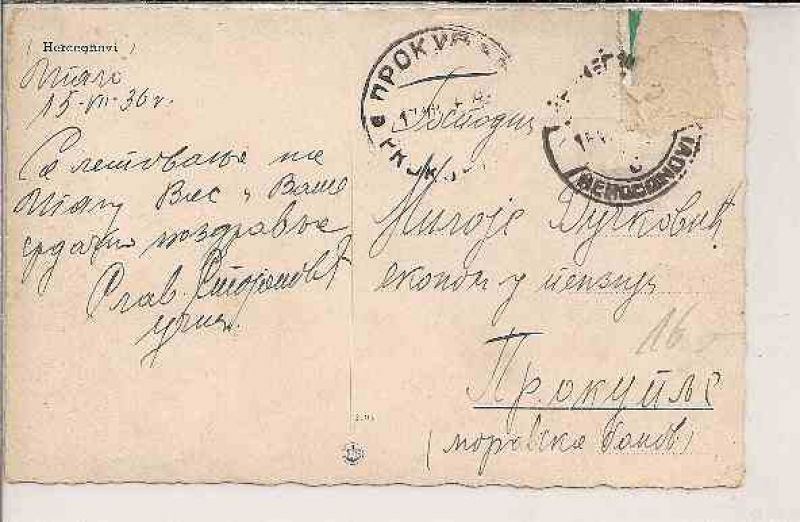 (Herceg Novi)
Игало
15-VII-36 г.
Са летовања на
Игалу Вас и Ваше
срдачно поздравља
Слав. Стојановић
учит.
ПРОКУП
HERCEGNOVI
Господин
Милоје Вучковић
економ у пензији
16
Прокупље
(моравска банов)